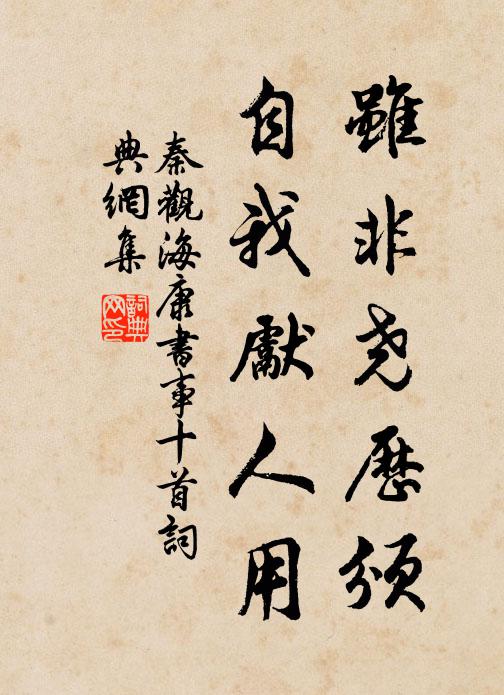 雖非堯歷頒
自我獻人用
秦觀海康書事十首詞
典網集
詞典網印